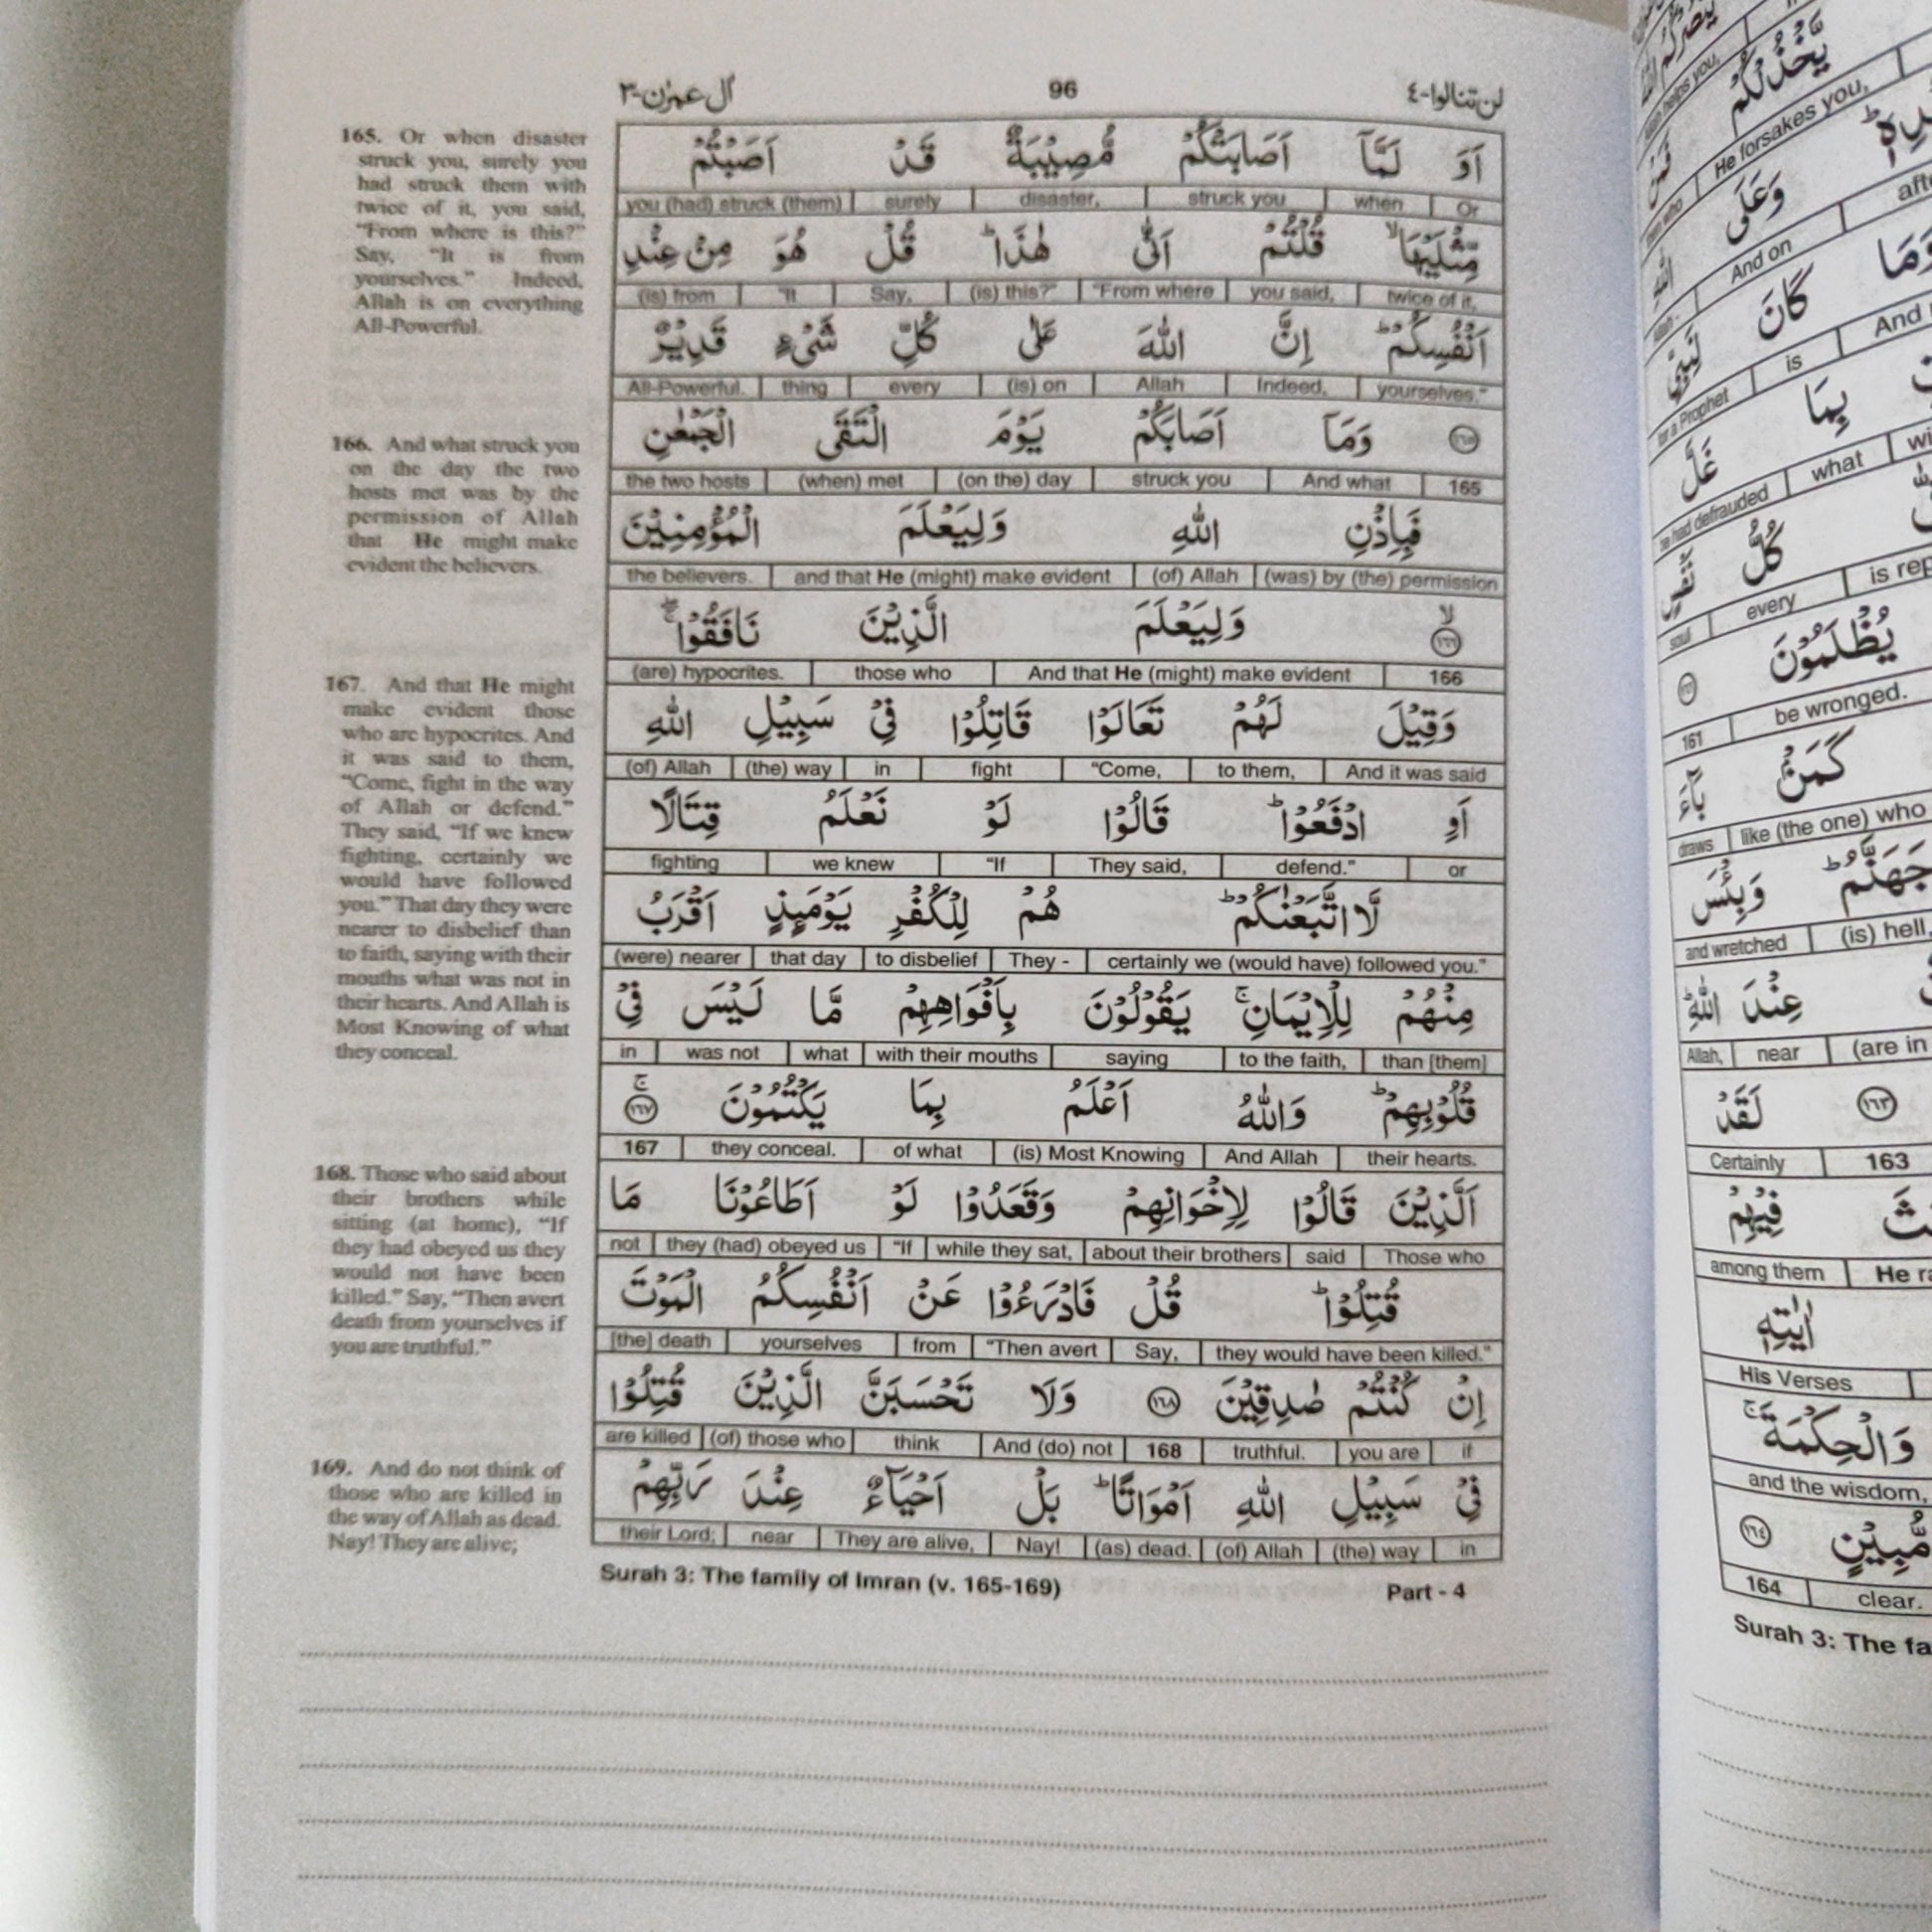 آل عمرٰن-٣ 96 لن تنالوا-٤
165. Or when disaster
struck you, surely you
had struck them with
twice of it, you said,
"From where is this?"
Say, "It is from
yourselves." Indeed,
Allah is on everything
All-Powerful.
166. And what struck you
on the day the two
hosts met was by the
permission of Allah
that He might make
evident the believers.
167. And that He might
make evident those
who are hypocrites. And
it was said to them,
"Come, fight in the way
of Allah or defend."
They said, "If we knew
fighting, certainly we
would have followed
you." That day they were
nearer to disbelief than
to faith, saying with their
mouths what was not in
their hearts. And Allah is
Most Knowing of what
they conceal.
168. Those who said about
their brothers while
sitting (at home), "If
they had obeyed us they
would not have been
killed." Say, "Then avert
death from yourselves if
you are truthful."
169. And do not think of
those who are killed in
the way of Allah as dead.
Nay! They are alive;
اَوَ لَمَّاۤ اَصَابَتْكُمْ مُّصِيْبَةٌ قَدْ اَصَبْتُمْ
you (had) struck (them) surely disaster, struck you when Or
مِّثْلَيْهَا ۙ قُلْتُمْ اَنّٰى هٰذَا ؕ قُلْ هُوَ مِنْ عِنْدِ
(is) from "It Say, (is) this?" "From where you said, twice of it,
اَنْفُسِكُمْ ؕ اِنَّ اللّٰهَ عَلٰى كُلِّ شَىْءٍ قَدِيْرٌ
All-Powerful. thing every (is) on Allah Indeed, yourselves."
١٦٥ وَمَاۤ اَصَابَكُمْ يَوْمَ الْتَقَى الْجَمْعٰنِ
the two hosts (when) met (on the) day struck you And what 165
فَبِاِذْنِ اللّٰهِ وَلِيَعْلَمَ الْمُؤْمِنِيْنَ
the believers. and that He (might) make evident (of) Allah (was) by (the) permission
١٦٦ ۙ وَلِيَعْلَمَ الَّذِيْنَ نَافَقُوْا ۖۚ
(are) hypocrites. those who And that He (might) make evident 166
وَقِيْلَ لَهُمْ تَعَالَوْا قَاتِلُوْا فِيْ سَبِيْلِ اللّٰهِ
(of) Allah (the) way in fight "Come, to them, And it was said
اَوِ ادْفَعُوْا ؕ قَالُوْا لَوْ نَعْلَمُ قِتَالًا
fighting we knew "If They said, defend." or
لَّا اتَّبَعْنٰكُمْ ؕ هُمْ لِلْكُفْرِ يَوْمَئِذٍ اَقْرَبُ
(were) nearer that day to disbelief They - certainly we (would have) followed you."
مِنْهُمْ لِلْاِيْمَانِ ۚ يَقُوْلُوْنَ بِاَفْوَاهِهِمْ مَّا لَيْسَ فِيْ
in was not what with their mouths saying to the faith, than [them]
قُلُوْبِهِمْ ؕ وَاللّٰهُ اَعْلَمُ بِمَا يَكْتُمُوْنَ ١٦٧ ۚ
167 they conceal. of what (is) Most Knowing And Allah their hearts.
اَلَّذِيْنَ قَالُوْا لِاِخْوَانِهِمْ وَقَعَدُوْا لَوْ اَطَاعُوْنَا مَا
not they (had) obeyed us "If while they sat, about their brothers said Those who
قُتِلُوْا ؕ قُلْ فَادْرَءُوْا عَنْ اَنْفُسِكُمُ الْمَوْتَ
[the] death yourselves from "Then avert Say, they would have been killed."
اِنْ كُنْتُمْ صٰدِقِيْنَ ١٦٨ وَلَا تَحْسَبَنَّ الَّذِيْنَ قُتِلُوْا
are killed (of) those who think And (do) not 168 truthful. you are if
فِيْ سَبِيْلِ اللّٰهِ اَمْوَاتًا ؕ بَلْ اَحْيَآءٌ عِنْدَ رَبِّهِمْ
their Lord; near They are alive, Nay! (as) dead. (of) Allah (the) way in
Surah 3: The family of Imran (v. 165-169) Part - 4
يَّخْذُلْكُمْ
helps you,
He forsakes you,
وَعَلَى
And on
وَمَا كَانَ لِنَبِيٍّ
for a Prophet is And
بِمَا غَلَّ
he had defrauded what
كُلُّ نَفْسٍ
soul every
يُظْلَمُوْنَ
161 be wronged.
كَمَنْ بَآءَ
draws like (the one) who
جَهَنَّمُ ؕ وَبِئْسَ
and wretched (is) hell,
عِنْدَ اللّٰهِ ؕ
Allah, near (are in
١٦٣ لَقَدْ
Certainly 163
فِيْهِمْ
among them He
اٰيٰتِهٖ
His Verses
وَالْحِكْمَةَ ۚ
and the wisdom,
مُّبِيْنٍ ١٦٤
164 clear.
Surah 3: The